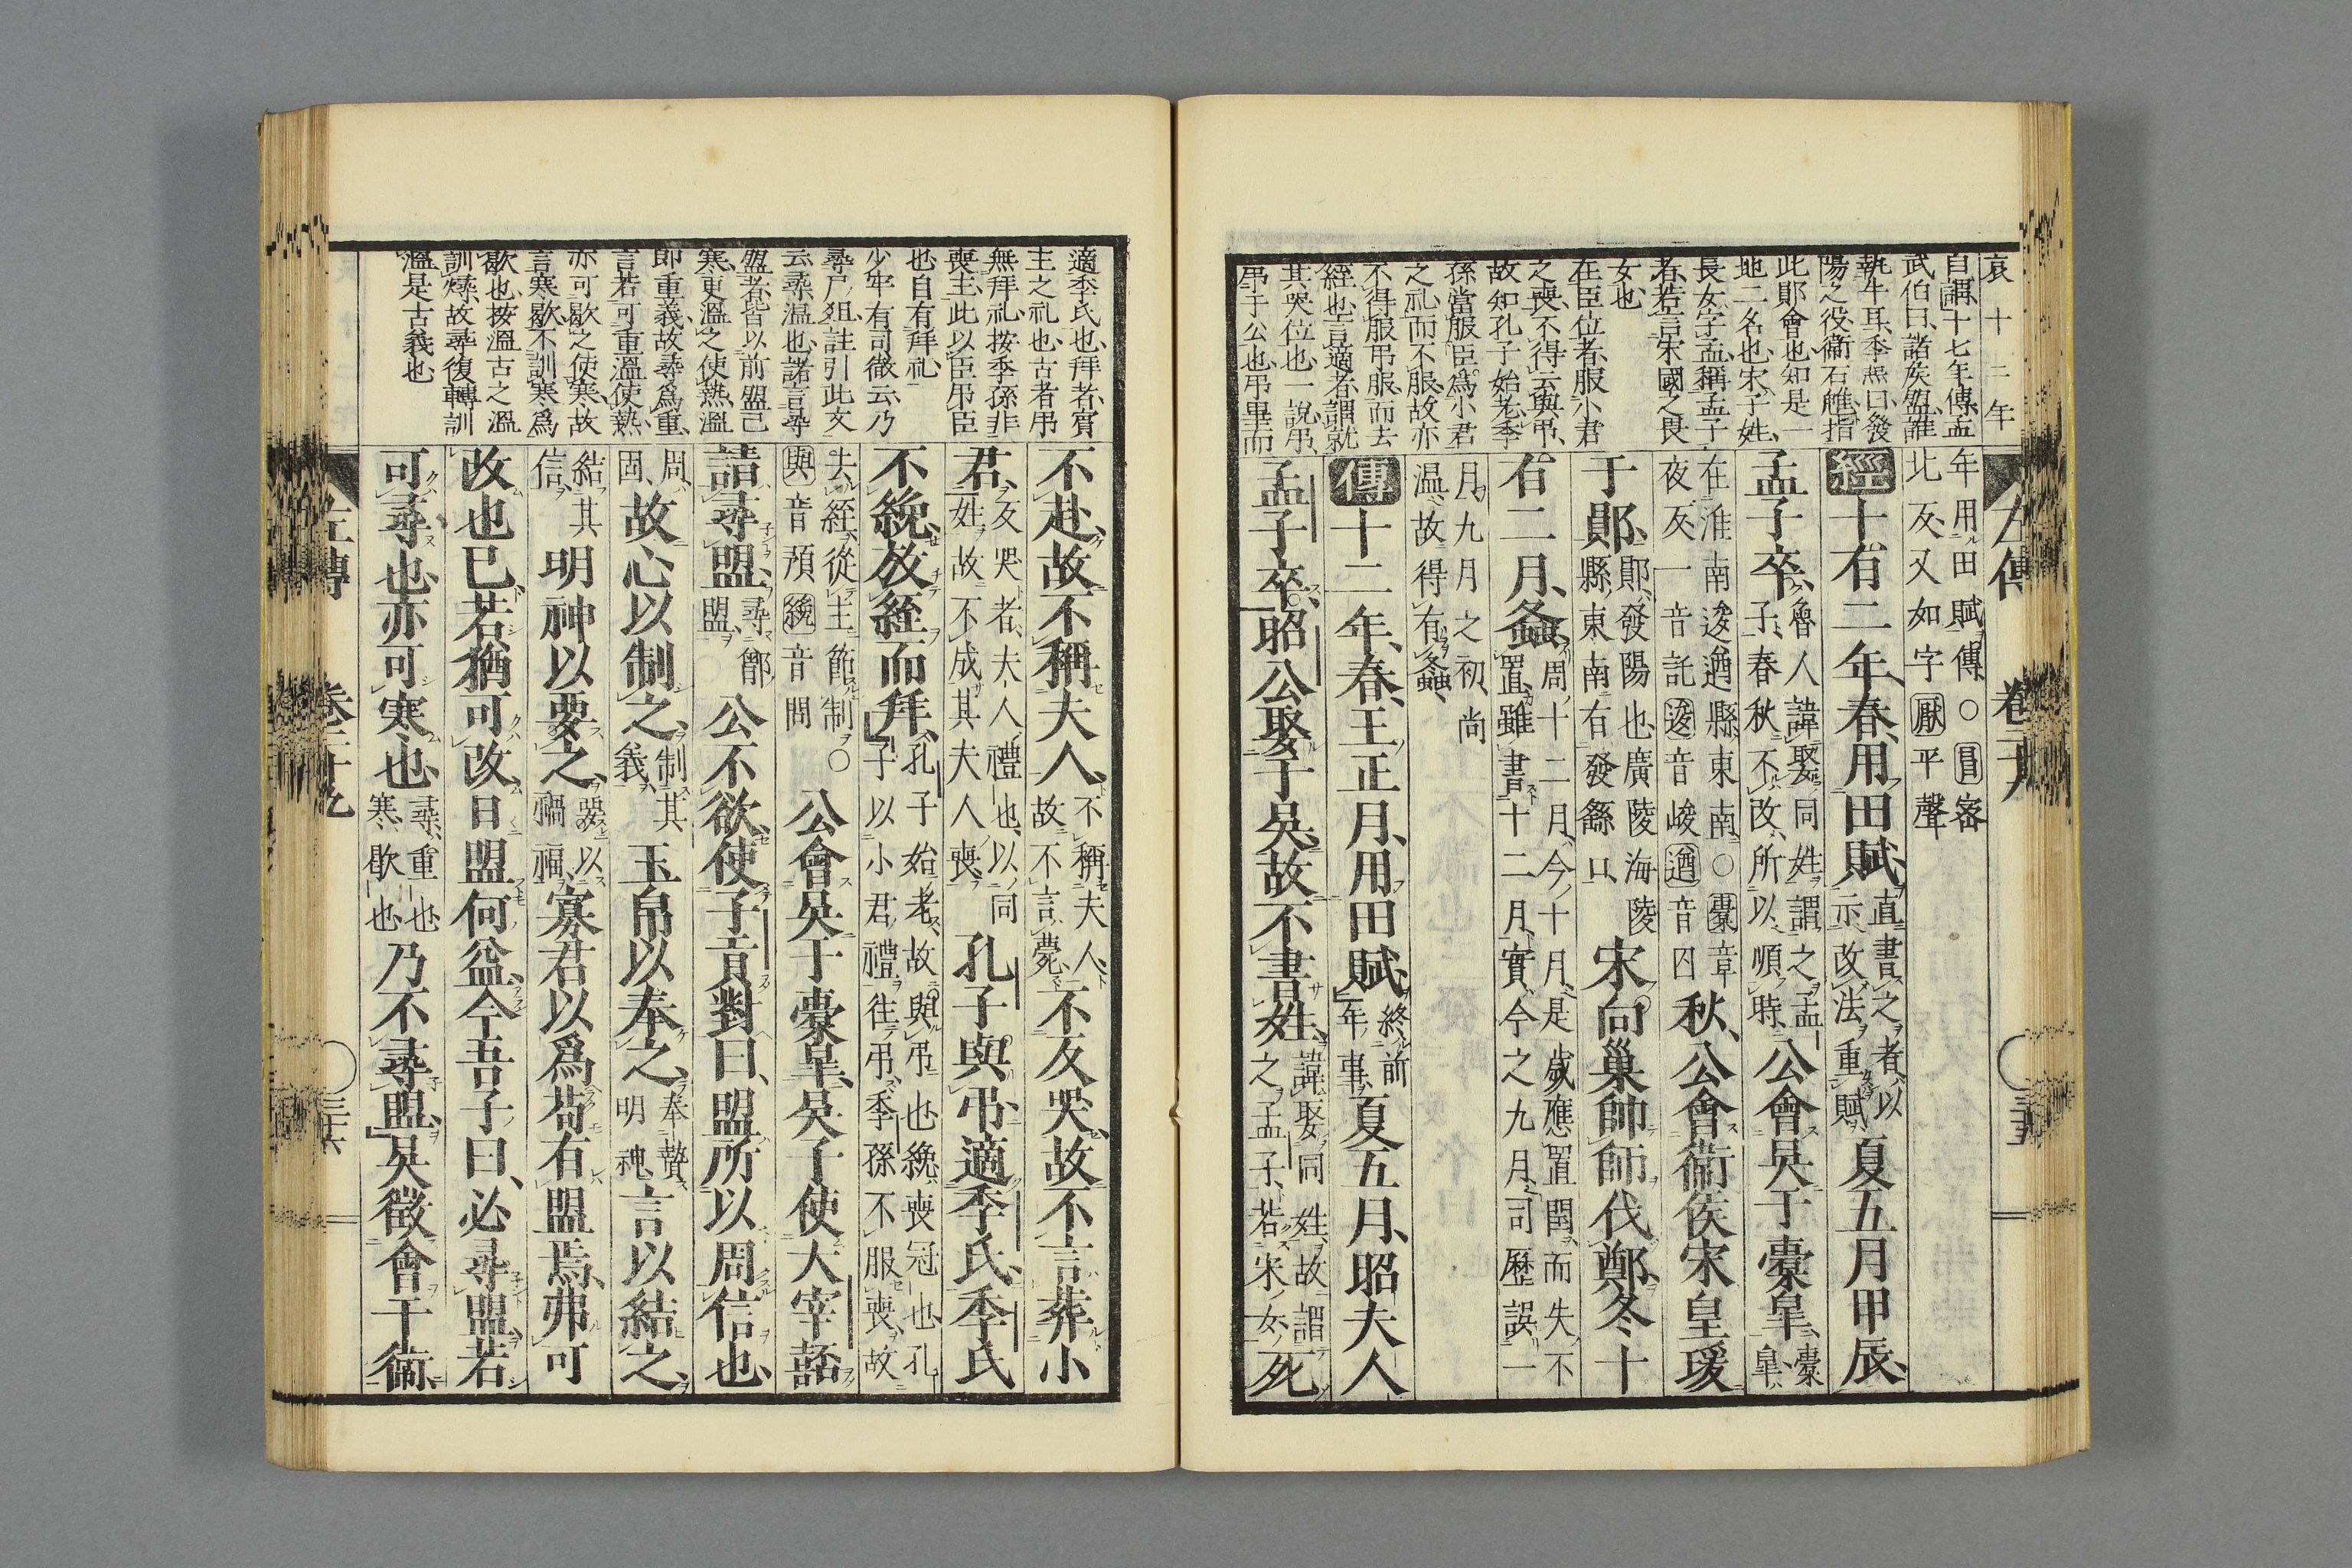 哀十二年
自謂、十七年傳、孟
武伯曰、諸矦盟、誰
執牛耳、季羔曰、發
陽之役、衞石魋、指
此鄖會也、知是一
地二名也、宋、子姓、
長女字孟、稱孟子
者、若言宋國之長
女也
在臣位者、服小君
之喪、不得云與弔、
故知孔子始老、季
孫當服臣爲小君
之礼、而不服、故亦
不得服弔服而去
絰也、言適者、謂就
其哭位也、一說、弔、
弔于公也、弔畢而
左傳 卷二十九 三十五
年用田賦傳、〇員密
北反、又如字厭平聲
經十有二年、春、用田賦、直書之者、以示改法重賦夏五月甲辰、
孟子卒、魯人諱娶同姓、謂之孟子、春秋不改、所以順時、公會吳于橐皐、橐皐、
在淮南逡遒縣東南、〇橐章夜反、一音託逡音峻遒音囚秋、公會衞矦宋皇瑗
于鄖、鄖、發陽也、廣陵海陵縣東南有發繇口、宋向巢帥師伐鄭、冬、十
有二月、螽、周十二月、今十月、是歲應置閏、而失不置、雖書十二月、實今之九月、司歷誤一
月、九月之初、尚温、故得有螽、
傳十二年、春、王正月、用田賦、終前年事、夏五月、昭夫人
孟子卒、昭公娶于吳、故不書姓、諱娶同姓、故謂之孟子、若宋女、死
適季氏也、拜者、賓
主之礼也、古者弔
無拜礼、按季孫非
喪主、此以臣弔臣
也、自有拜礼
少牢、有司徹云、乃
尋尸俎、註引此文
云、尋、温也、諸言尋
盟者、皆以前盟已
寒、更溫之使熱、溫
即重義、故尋爲重、
言若可重溫使熱、
亦可歇之使寒、故
言寒歇、不訓寒爲
歇也、按溫古之溫
訓燖、故尋復轉訓
溫、是古義也
不赴、故不稱夫人、不稱夫人、故不言薨、不反哭、故不言葬小
君、反哭者、夫人禮也、以同姓故、不成其夫人喪、孔子與弔、適季氏、季氏
不絻、放絰而拜、孔子始老、故與弔也、絻、喪冠也、孔子以小君禮往弔、季孫不服喪、故
去絰、從主節制、〇與音預絻音問公會吳于橐皐、吳子使大宰嚭
請尋盟、尋鄫盟、公不欲、使子貢對曰、盟所以周信也、
周、固、故心以制之、制其義、玉帛以奉之、奉贄明神、言以結之、
結其信、明神以要之、要以禍福、寡君以爲苟有盟焉、弗可
改也已、若猶可改、日盟何益、今吾子曰、必尋盟、若
可尋也、亦可寒也、尋、重也、寒、歇也、乃不尋盟、吳徵會于衞、
左傳 卷二十九 三十六